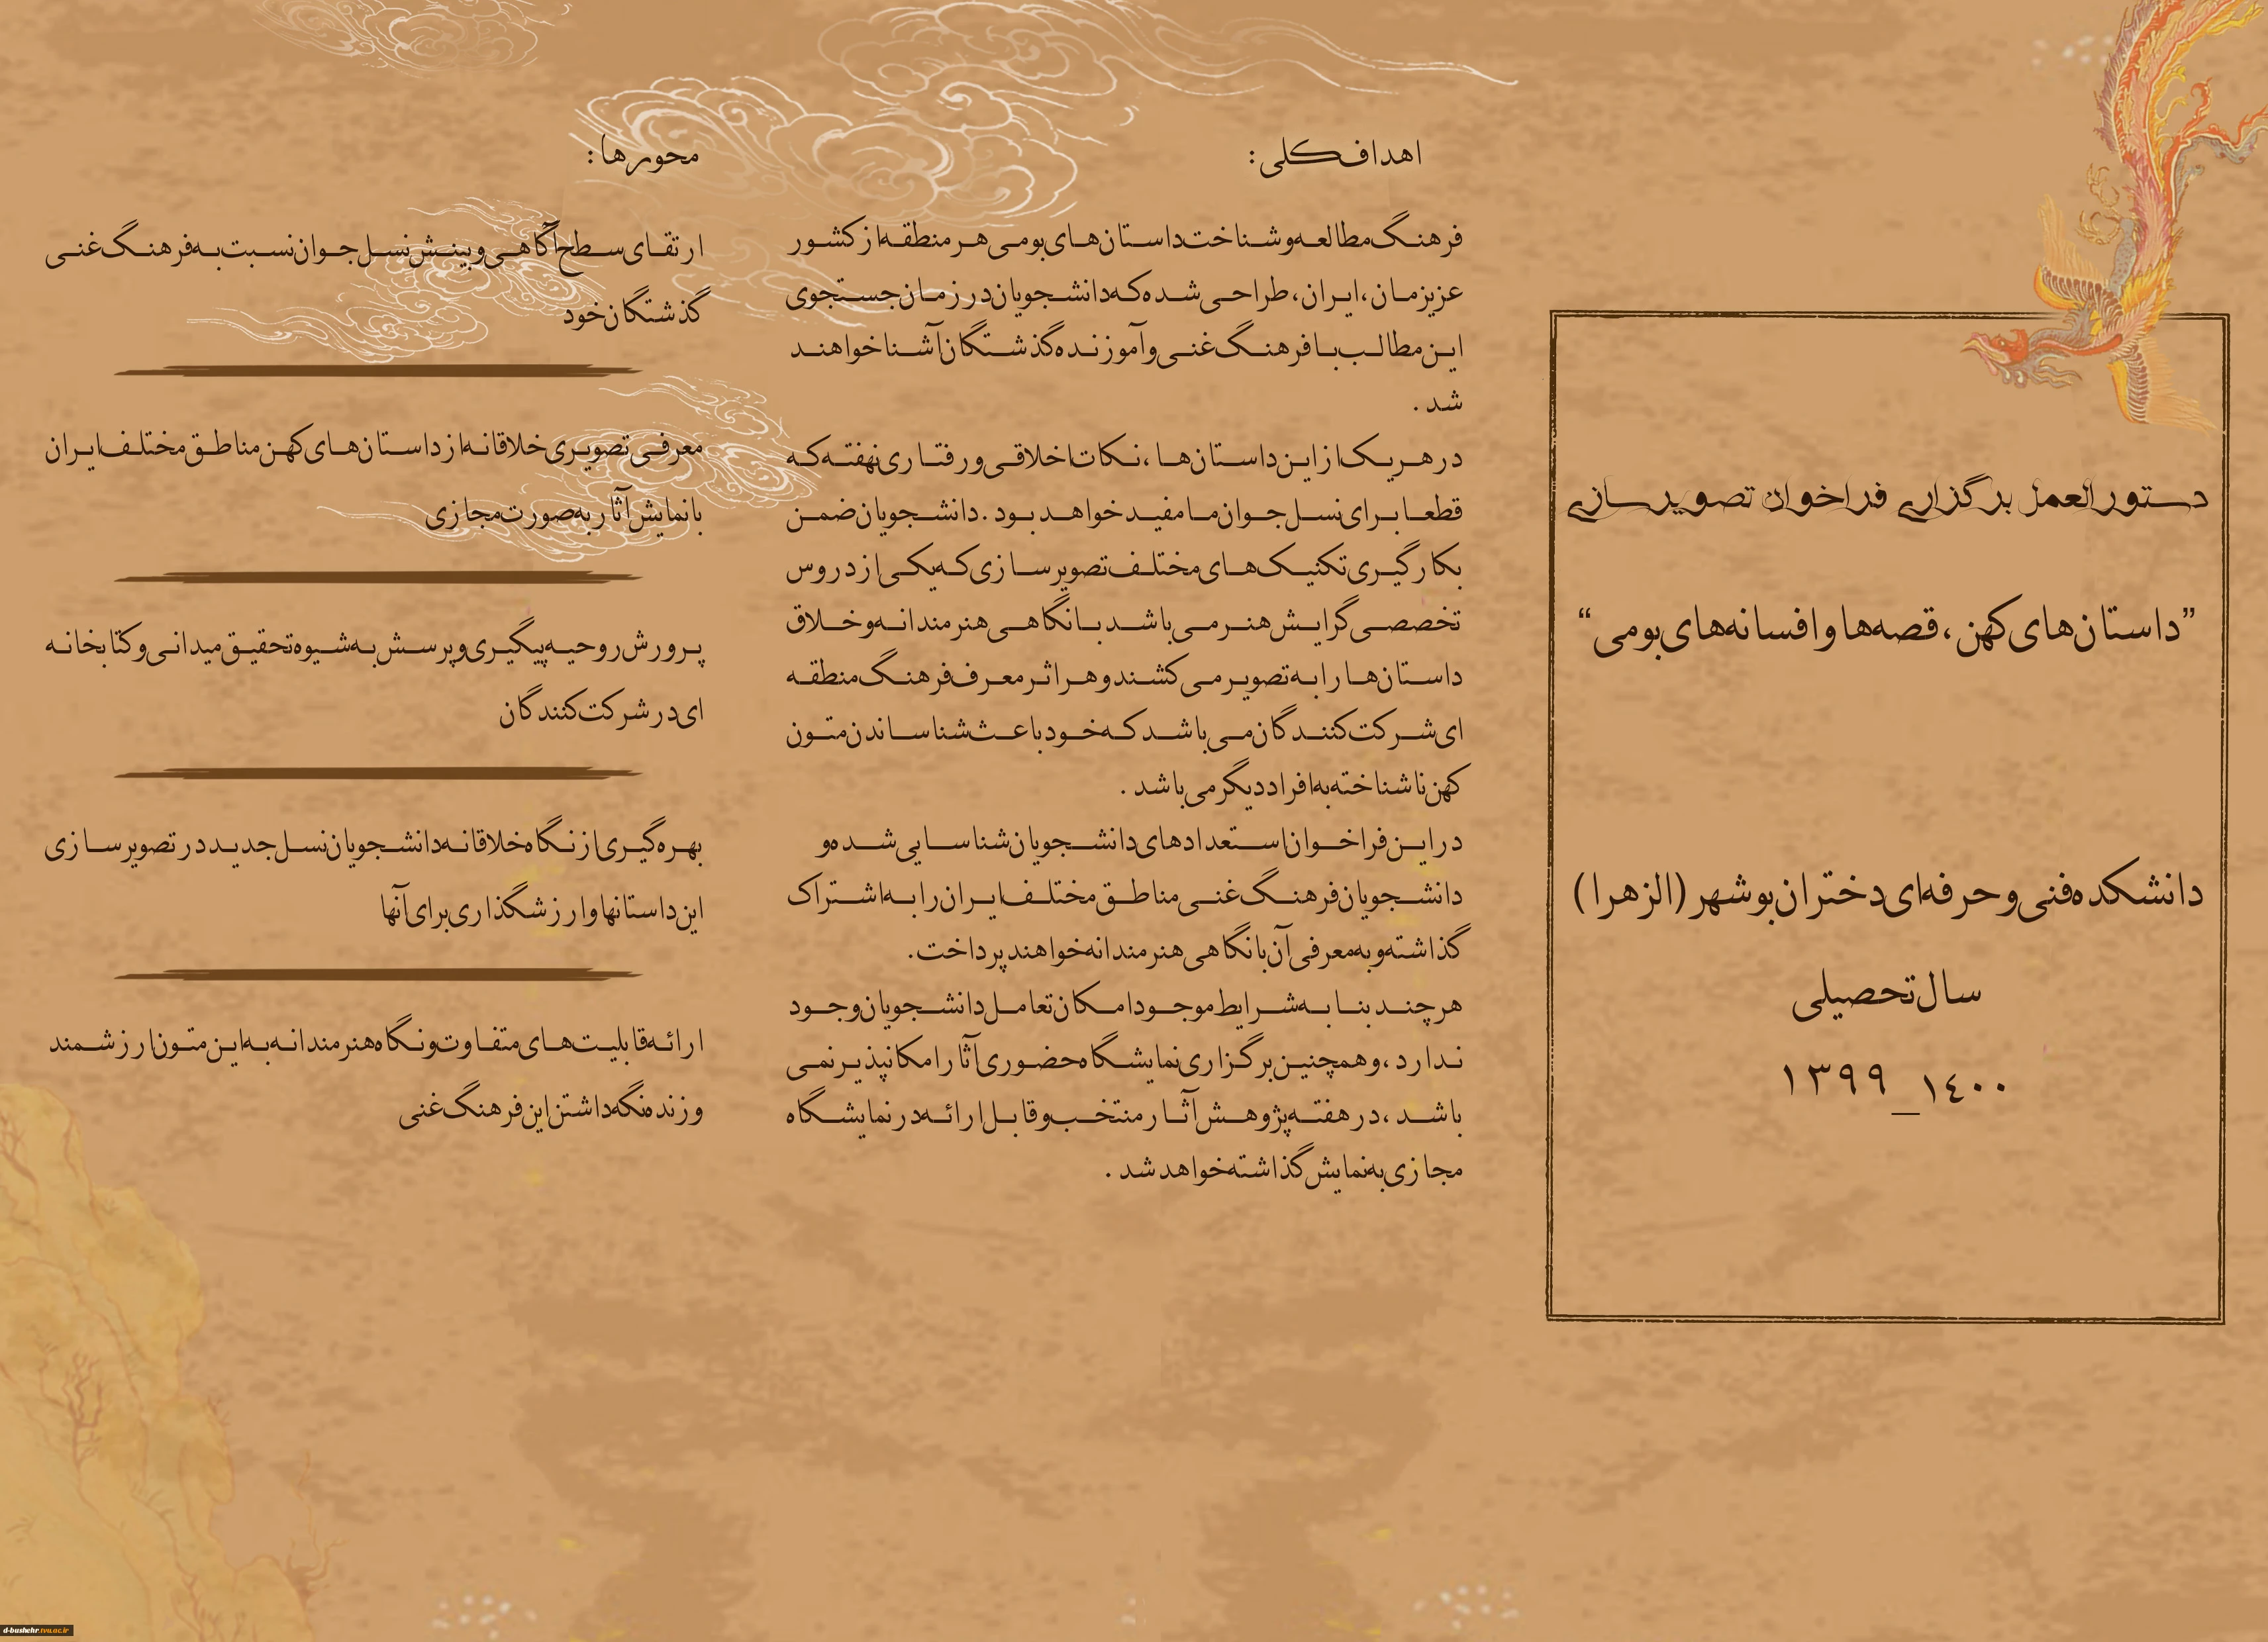 دستورالعمل برگزاری فراخوان تصویرسازی
”داستان‌های کهن، قصه‌ها و افسانه‌های بومی“
دانشکده فنی و حرفه‌ای دختران بوشهر (الزهرا)
سال تحصیلی
۱۳۹۹_۱۴۰۰
اهداف کلی:
فرهنگ مطالعه و شناخت داستان‌های بومی هر منطقه از کشور
عزیزمان، ایران، طراحی شده که دانشجویان در زمان جستجوی
این مطالب با فرهنگ غنی و آموزنده گذشتگان آشنا خواهند
شد.
در هر یک از این داستان‌ها، نکات اخلاقی و رفتاری نهفته که
قطعا برای نسل جوان ما مفید خواهد بود. دانشجویان ضمن
بکارگیری تکنیک‌های مختلف تصویرسازی که یکی از دروس
تخصصی گرایش هنر می‌باشد با نگاهی هنرمندانه و خلاق
داستان‌ها را به تصویر می‌کشند و هر اثر معرف فرهنگ منطقه
ای شرکت کنندگان می‌باشد که خود باعث شناساندن متون
کهن ناشناخته به افراد دیگر می‌باشد.
در این فراخوان استعدادهای دانشجویان شناسایی شده و
دانشجویان فرهنگ غنی مناطق مختلف ایران را به اشتراک
گذاشته و به معرفی آن با نگاهی هنرمندانه خواهند پرداخت.
هرچند بنا به شرایط موجود امکان تعامل دانشجویان وجود
ندارد، و همچنین برگزاری نمایشگاه حضوری آثار امکانپذیر نمی
باشد، در هفته پژوهش آثار منتخب و قابل ارائه در نمایشگاه
مجازی به نمایش گذاشته خواهد شد.
محورها:
ارتقای سطح آگاهی و بینش نسل جوان نسبت به فرهنگ غنی
گذشتگان خود
معرفی تصویری خلاقانه از داستان‌های کهن مناطق مختلف ایران
با نمایش آثار به صورت مجازی
پرورش روحیه پیگیری و پرسش به شیوه تحقیق میدانی و کتابخانه
ای در شرکت کنندگان
بهره‌گیری از نگاه خلاقانه دانشجویان نسل جدید در تصویرسازی
این داستانها و ارزشگذاری برای آنها
ارائه قابلیت‌های متفاوت و نگاه هنرمندانه به این متون ارزشمند
و زنده نگه داشتن این فرهنگ غنی
d-bushehr.tvu.ac.ir